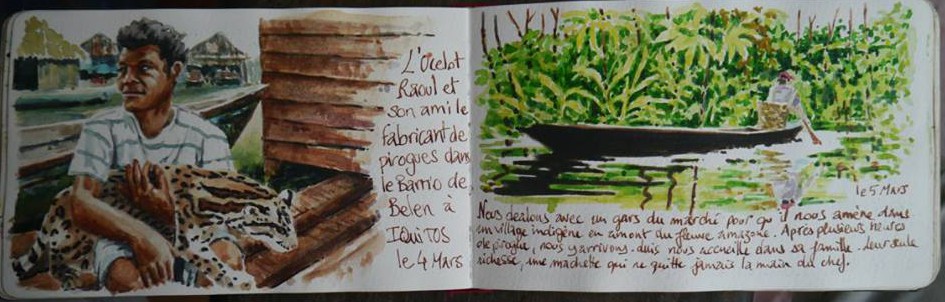 L'Ocelot
Raoul et
son ami le
fabricant de
pirogues dans
le Barrio de
Belen à
IQUITOS
le 4 Mars
le 5 Mars
Nous dealons avec un gars du marché pour qu'il nous amène dans
un village indigène en amont du fleuve amazone. Après plusieurs heures
de pirogue, nous y arrivons. Luis nous accueille dans sa famille. Leur seule
richesse, une machette qui ne quitte jamais la main du chef.